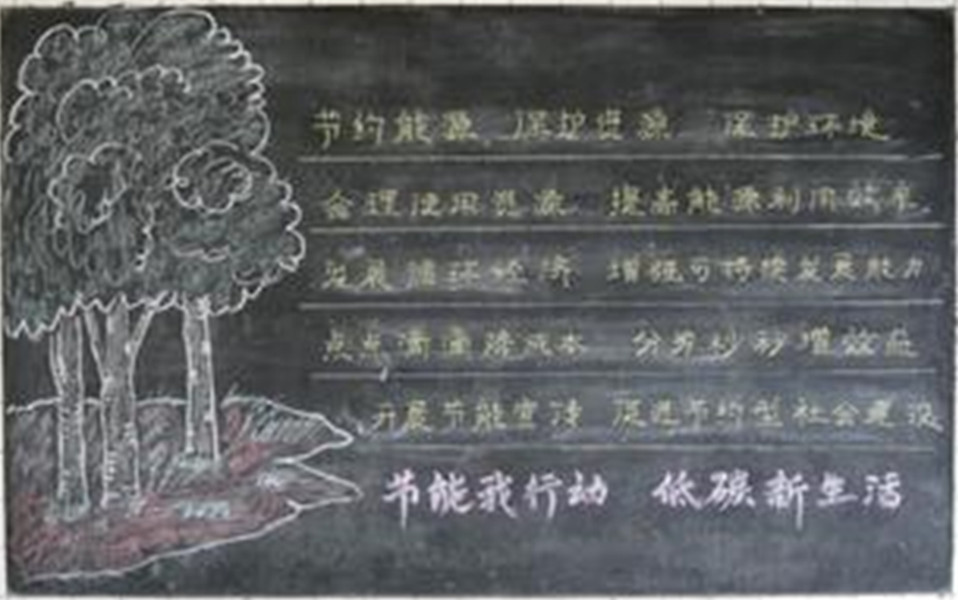 节约能源 保护资源 保护环境
合理使用资源 提高能源利用效率
发展循环经济 增强可持续发展能力
点点滴滴降成本 分分秒秒增效益
开展节能宣传 促进节约型社会建设
节能我行动 低碳新生活